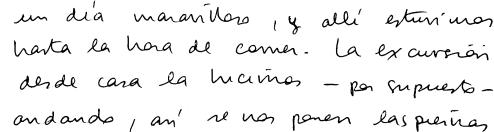 un día maravilloso, y allí estuvimos
hasta la hora de comer. La excursión
desde casa la hicimos - por supuesto -
andando, así se nos ponen las piernas